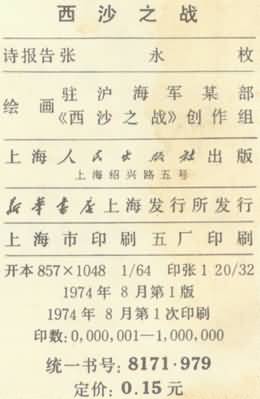 西沙之战
诗报告 张永枚
绘画 驻沪海军某部
《西沙之战》创作组
上海人民出版社出版
上海绍兴路五号
新华书店上海发行所发行
上海市印刷五厂印刷
开本 857×1048 1/64 印张 1 20/32
1974年8月第1版
1974年8月第1次印刷
印数:0,000,001—1,000,000
统一书号: 8171·979
定价: 0.15 元